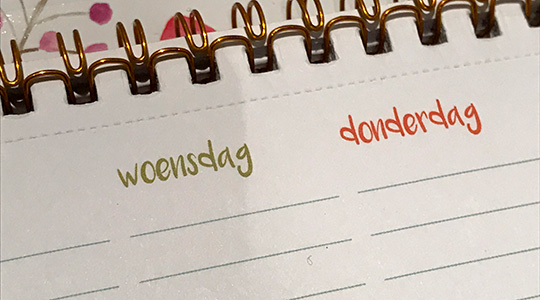 woensdag donderdag